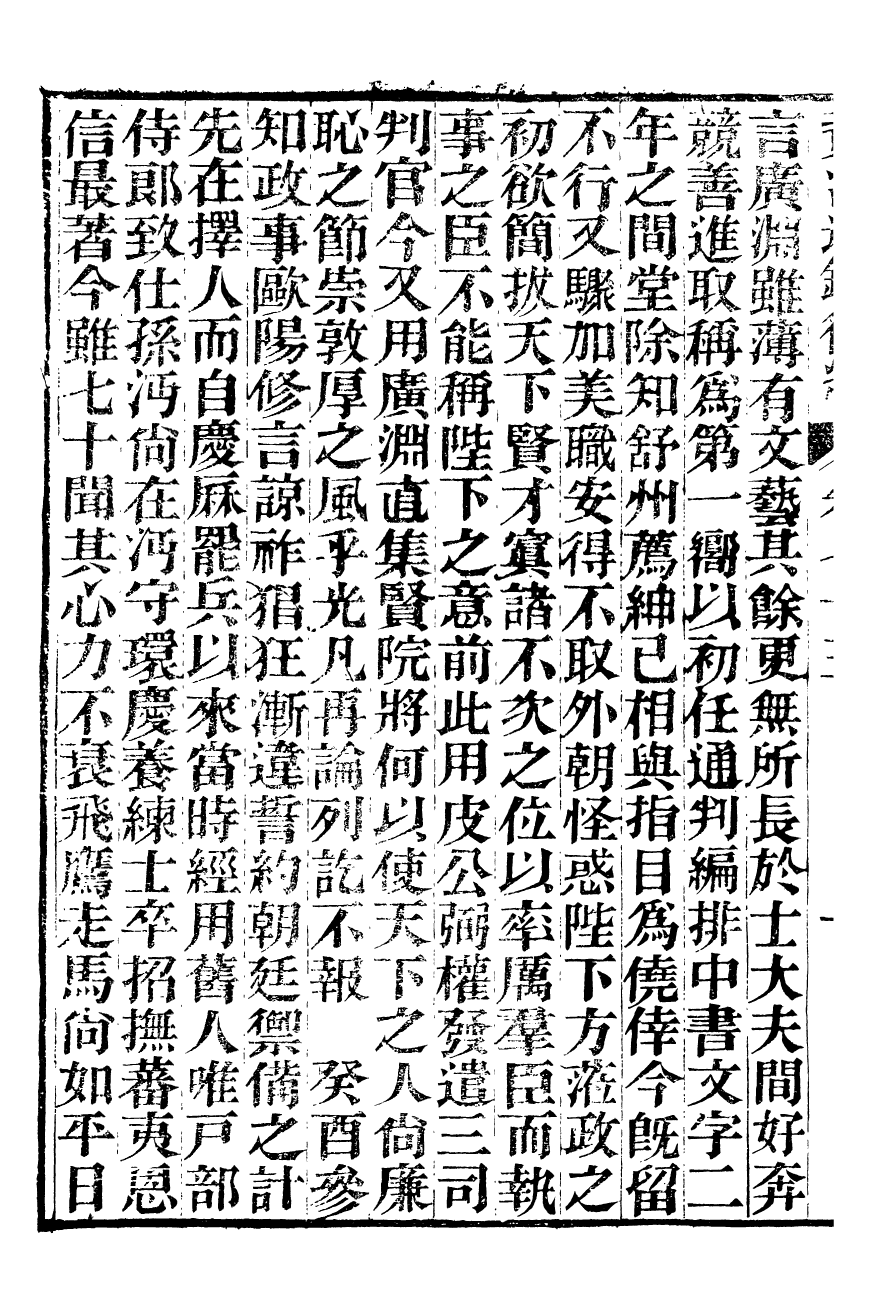 言廣淵雖薄有文藝其餘更無所長於士大夫間好奔
競善進取稱爲第一嚮以初任通判編排中書文字二
年之間堂除知舒州薦紳已相與指目爲僥倖今旣留
不行又驟加美職安得不取外朝怪惑陛下方蒞政之
初欲簡拔天下賢才寘諸不次之位以率厲羣臣而執
事之臣不能稱陛下之意前此用皮公弼權發遣三司
判官今又用廣淵直集賢院將何以使天下之人尙廉
恥之節崇敦厚之風乎光凡再論列訖不報　癸酉參
知政事歐陽修言諒祚猖狂漸違誓約朝廷禦備之計
先在擇人而自慶厤罷兵以來當時經用舊人唯戸部
侍郎致仕孫沔尙在沔守環慶養練士卒招撫蕃夷恩
信最著今雖七十聞其心力不衰飛鷹走馬尙如平日